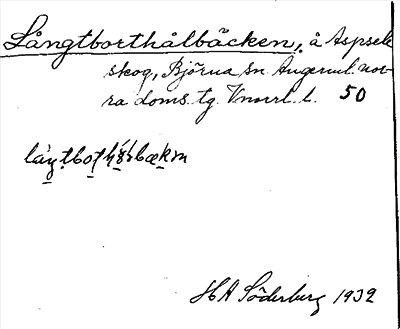 Långtborthålbäcken, å Aspsele
skog, Björna sn Ångerml. nor-
ra doms. tg. Vnorrl. l. 50
H A Söderberg 1932